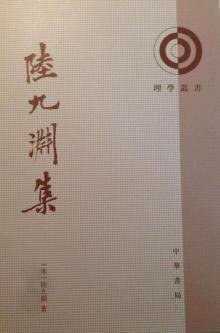 理學叢書
陸九淵集
〔宋〕陸九淵 著
中華書局